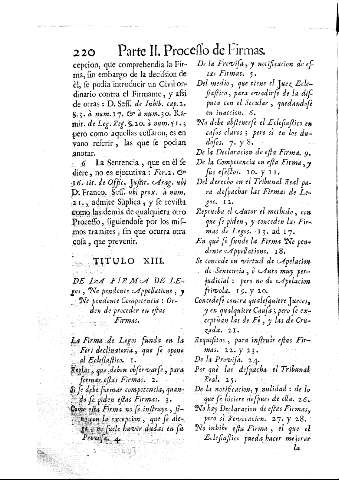 220 Parte II. Processo de Firmas.
cepcion, que comprehendia la Fir-
ma, sin embargo de la decision de
él, se podia introducir un Civil or-
dinario contra el Firmante, y assi
de otras: D. Sess. de Inhib. cap. 2.
§. 3. à num. 17. & à num. 30. Ra-
mir. de Leg. Reg. §. 20. à num. 21.;
pero como aquellas cessaron, es en
vano referir, las que se podian
anotar.
6 La Sentencia, que en él se
diere, no es executiva: Fer. 2. &
36. tit. de Offic. Justic. Arag. ubi
D. Franco. Sess. ubi prox. à num.
21., admite Súplica, y se revista
como las demás de qualquiera otro
Processo, siguiendose por los mis-
mos tramites, sin que ocurra otra
cosa, que prevenir.
TITULO XIII.
DE LA FIRMA DE LE-
ges, Ne pendente Appellatione, y
Ne pendente Competentia: Or-
den de proceder en estas
Firmas.
La Firma de Leges funda en la
Fori declinatoria, que se opone
al Eclesiastico. 1.
Reglas, que deben observarse, para
formar estas Firmas. 2.
Si se debe formar competencia, quan-
do se piden estas Firmas. 3.
Como esta Firma no se instruye, si-
no con la excepcion, que se ale-
ga y no suele haver dudas en su
Provisa. 4.
De la Provisa, y notificacion de es-
tas Firmas. 5.
Del medio, que tiene el Juez Ecle-
siastico, para evadirse de la dis-
puta con el Secular, quedandose
en inaccion. 6.
No debe abstenerse el Eclesiastico en
casos claros; pero si en los du-
dosos. 7. y 8.
De la Declaracion de esta Firma. 9.
De la Competencia en esta Firma, y
sus efectos. 10. y 11.
Del derecho en el Tribunal Real pa-
ra despachar las Firmas de Le-
gos. 12.
Reprueba el Autor el methodo, con
que se piden, y conceden las Fir-
mas de Legos. 13. ad 17.
En què se funda la Firma Ne pen-
dente Appellatione. 18.
Se concede en virtud de Apelacion
de Sentencia, ò Auto muy per-
judicial: pero no de Apelacion
frivola. 19. y 20.
Concedese contra qualesquiere Jueces,
y en qualquiere Causa; pero se ex-
ceptúan las de Fé, y las de Cru-
zada. 21.
Requisitos, para instruir estas Fir-
mas. 22. y 23.
De la Provisa. 24.
Por què las despacha el Tribunal
Real. 25.
De la notificacion, y nulidad: de lo
que se hiciere despues de ella. 26.
No hay Declaracion de estas Firmas,
pero si Revocacion. 27. y 28.
No hay en esta Firma, el que el
Eclesiastico pueda hacer mejorar
la